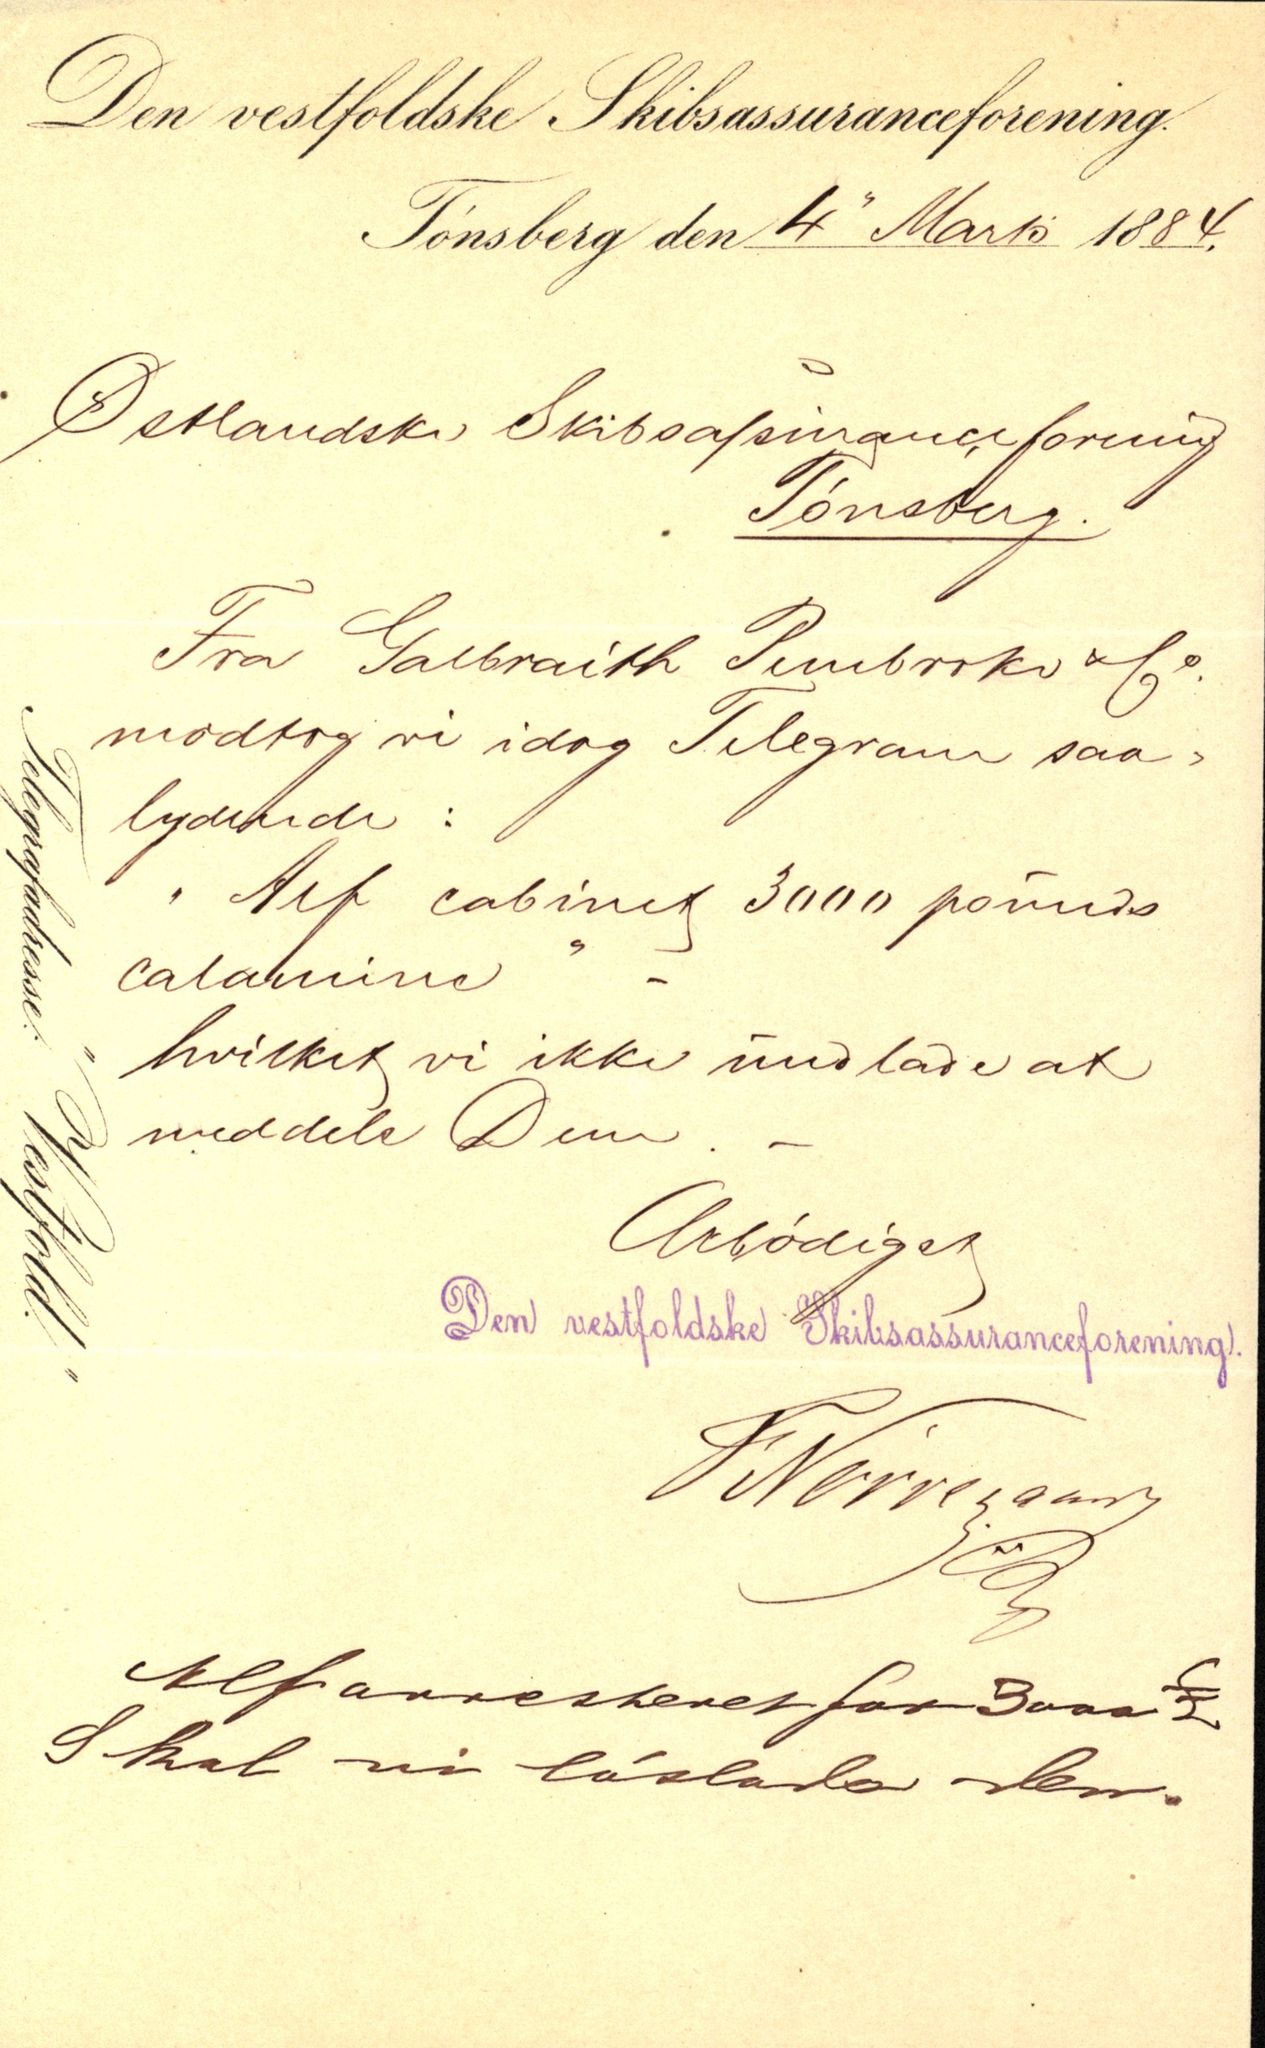 Den vestfoldske Skibsassuranceforening.
Tónsberg den 4" Marts 1884.
Østlandske Skibsassuranceforening
Tónsberg.
Fra Galbraith Pembroke & Co.
modtog vi idag Telegram saa-
lydende :
" Alf cabinet 3000 pounds
calamine " -
hvilket vi ikke undlade at
meddele Dem. -
Ærbódigst
Den vestfoldske Skibsassuranceforening.
Alf arresteret for 3000 £
Skal vi lóslade den.
Telegrafadresse: "Vestfold."